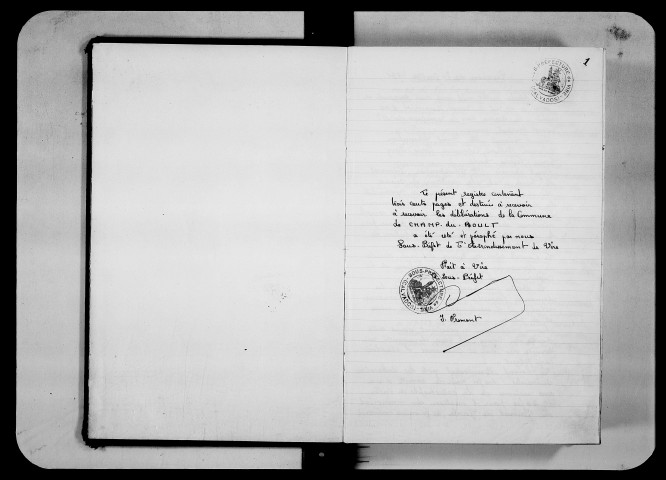 1
S-PREFECTURE de VIRE
(CALVADOS)
Le présent registre contenant
trois cents pages et destiné à recevoir
à recevoir les délibérations de la Commune
de CHAMP-du-BOULT
a été coté et paraphé par nous
Sous-Préfet de l'Arrondissement de Vire
Fait à Vire
Le Sous-Préfet
SOUS-PREFECTURE de VIRE
(CALVADOS)